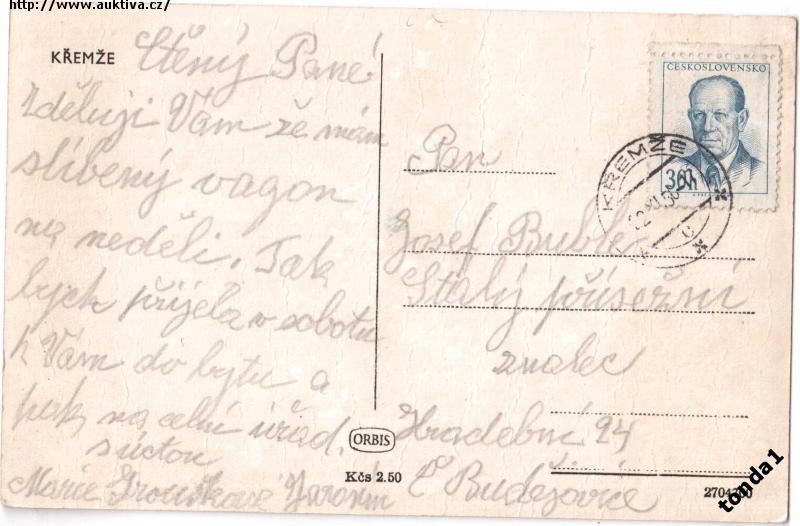 http://www.auktiva.cz/
KŘEMŽE
Ctěný Pane!
Zděluji Vam že mám
slíbený vagon
na neděli. Tak
bych přijela v sobotu
k Vám do bytu a
pak na celní úřad.
s úctou
Marie
ORBIS
Kčs 2.50
ČESKOSLOVENSKO
30h
KŘEMŽE
Pan
Josef
Stálý přísežní
znalec
Hradební 24
Č Budějovice
tonda1